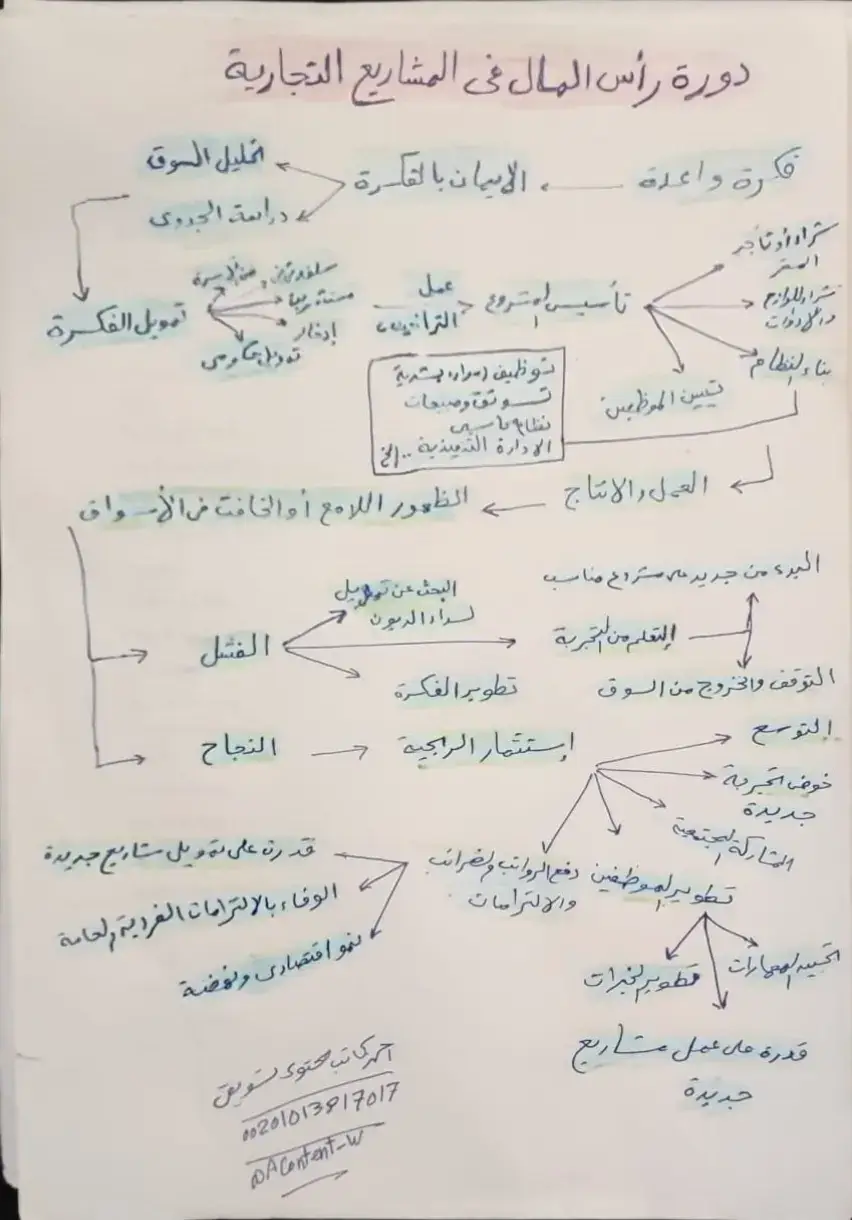 دورة رأس المال في المشاريع التجارية
فكرة واعدة
الإيمان بالفكرة
تحليل السوق
دراسة الجدوى
تمويل الفكرة
إدخار
تمويل حكومي
عمل
التراخيص
تأسيس المشروع
شراء أو تأجير
المقر
شراء اللوازم
والأدوات
بناء النظام
تعيين الموظفين
توظيف (موارد بشرية
تسويق ومبيعات
نظام محاسبي
الادارة التنفيذية .. الخ
العمل والانتاج
الظهور اللامع أو الخافت في الأسواق
الفشل
البحث عن تمويل
لسداد الديون
التعلم من التجربة
البدء من جديد على مشروع مناسب
التوقف والخروج من السوق
تطوير الفكرة
النجاح
إستثمار الربحية
التوسع
خوض التجربة
جديدة
المشاركة المجتمعية
تطوير الموظفين
دفع الرواتب والضرائب
والالتزامات
قدرة على تمويل مشاريع جديدة
الوفاء بالالتزامات الفردية والعامة
نمو اقتصادي ونهضة
المهارات
تطوير الخبرات
قدرة على عمل مشاريع
جديدة
أحمد كاتب محتوى تسويقي
00201013817017
@AContent-W